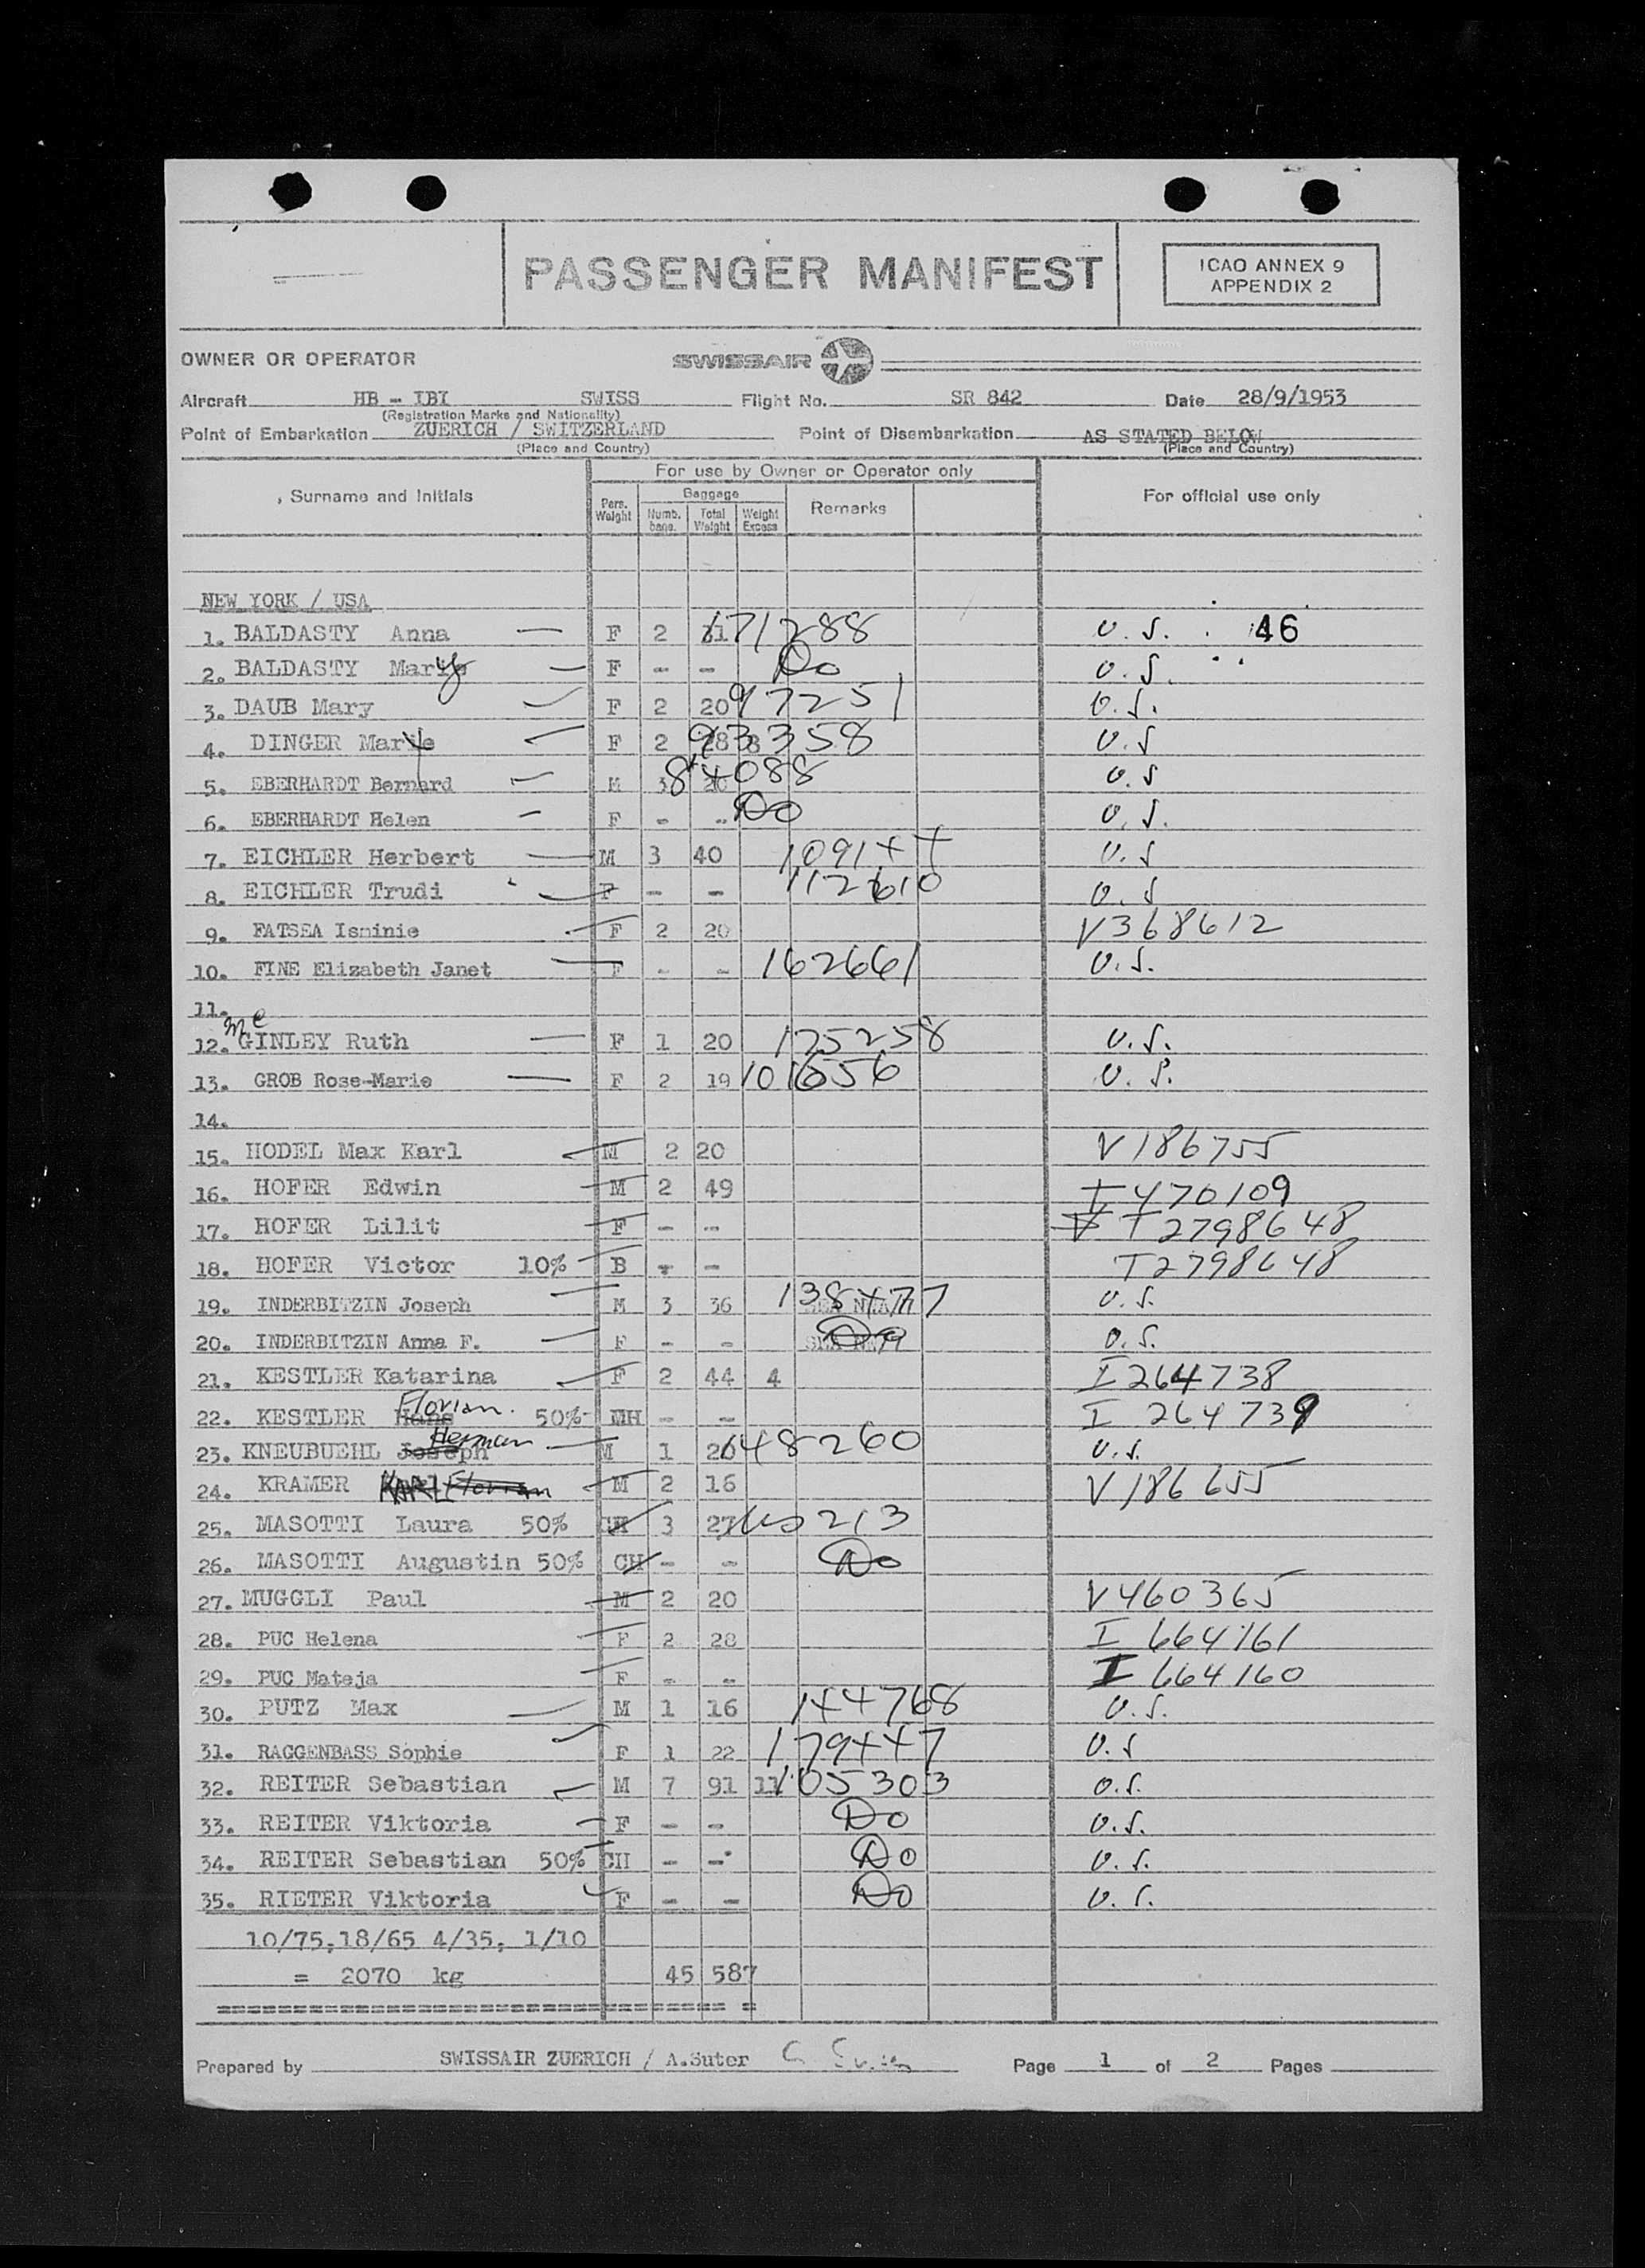 PASSENGER MANIFEST
ICAO ANNEX 9
APPENDIX 2
OWNER OR OPERATOR SWISSAIR
Aircraft HB - IBI SWISS Flight No. SR 842 Date 28/9/1953
(Registration Marks and Nationality)
Point of Embarkation ZUERICH / SWITZERLAND Point of Disembarkation AS STATED BELOW
(Place and Country) (Place and Country)
For use by Owner or Operator only
Surname and Initials Pers. Weight Baggage Remarks For official use only
Numb. bags. Total Weight Weight Excess
NEW YORK / USA
1. BALDASTY Anna — F 2 31 171288 U.S. 46
2. BALDASTY Mary — F - - Do U.S.
3. DAUB Mary F 2 20 97251 U.S.
4. DINGER Mary F 2 28 8 93358 U.S
5. EBERHARDT Bernard — M 3 20 84088 U.S
6. EBERHARDT Helen — F - - Do U.S.
7. EICHLER Herbert — M 3 40 109144 U.S
8. EICHLER Trudi F - - 112610 U.S
9. FATSEA Isminie F 2 20 V368612
10. FINE Elizabeth Janet F - - 162661 U.S.
11.
12. Mc GINLEY Ruth — F 1 20 175258 U.S.
13. GROB Rose-Marie — F 2 19 101656 U.S.
14.
15. HODEL Max Karl M 2 20 V186755
16. HOFER Edwin M 2 49 I 470109
17. HOFER Lilit F - - T2798648
18. HOFER Victor 10% B - - T2798648
19. INDERBITZIN Joseph M 3 36 138477 U.S.
20. INDERBITZIN Anna F. F - - Do U.S.
21. KESTLER Katarina F 2 44 4 I 264738
22. KESTLER Hans Florian. 50% MH - - I 264739
23. KNEUBUEHL Joseph Herman M 1 20 148260 U.S.
24. KRAMER KARL Florian M 2 16 V186655
25. MASOTTI Laura 50% CH 3 27 213
26. MASOTTI Augustin 50% CH - - Do
27. MUGGLI Paul M 2 20 V460365
28. PUC Helena F 2 28 I 664161
29. PUC Mateja F - - I 664160
30. PUTZ Max M 1 16 144768 U.S.
31. RAGGENBASS Sophie F 1 22 179447 U.S
32. REITER Sebastian M 7 91 11 105303 U.S.
33. REITER Viktoria F - - Do U.S.
34. REITER Sebastian 50% CH - - Do U.S.
35. RIETER Viktoria F - - Do U.S.
10/75,18/65 4/35, 1/10
= 2070 kg 45 587
Prepared by SWISSAIR ZUERICH / A.Suter Page 1 of 2 Pages